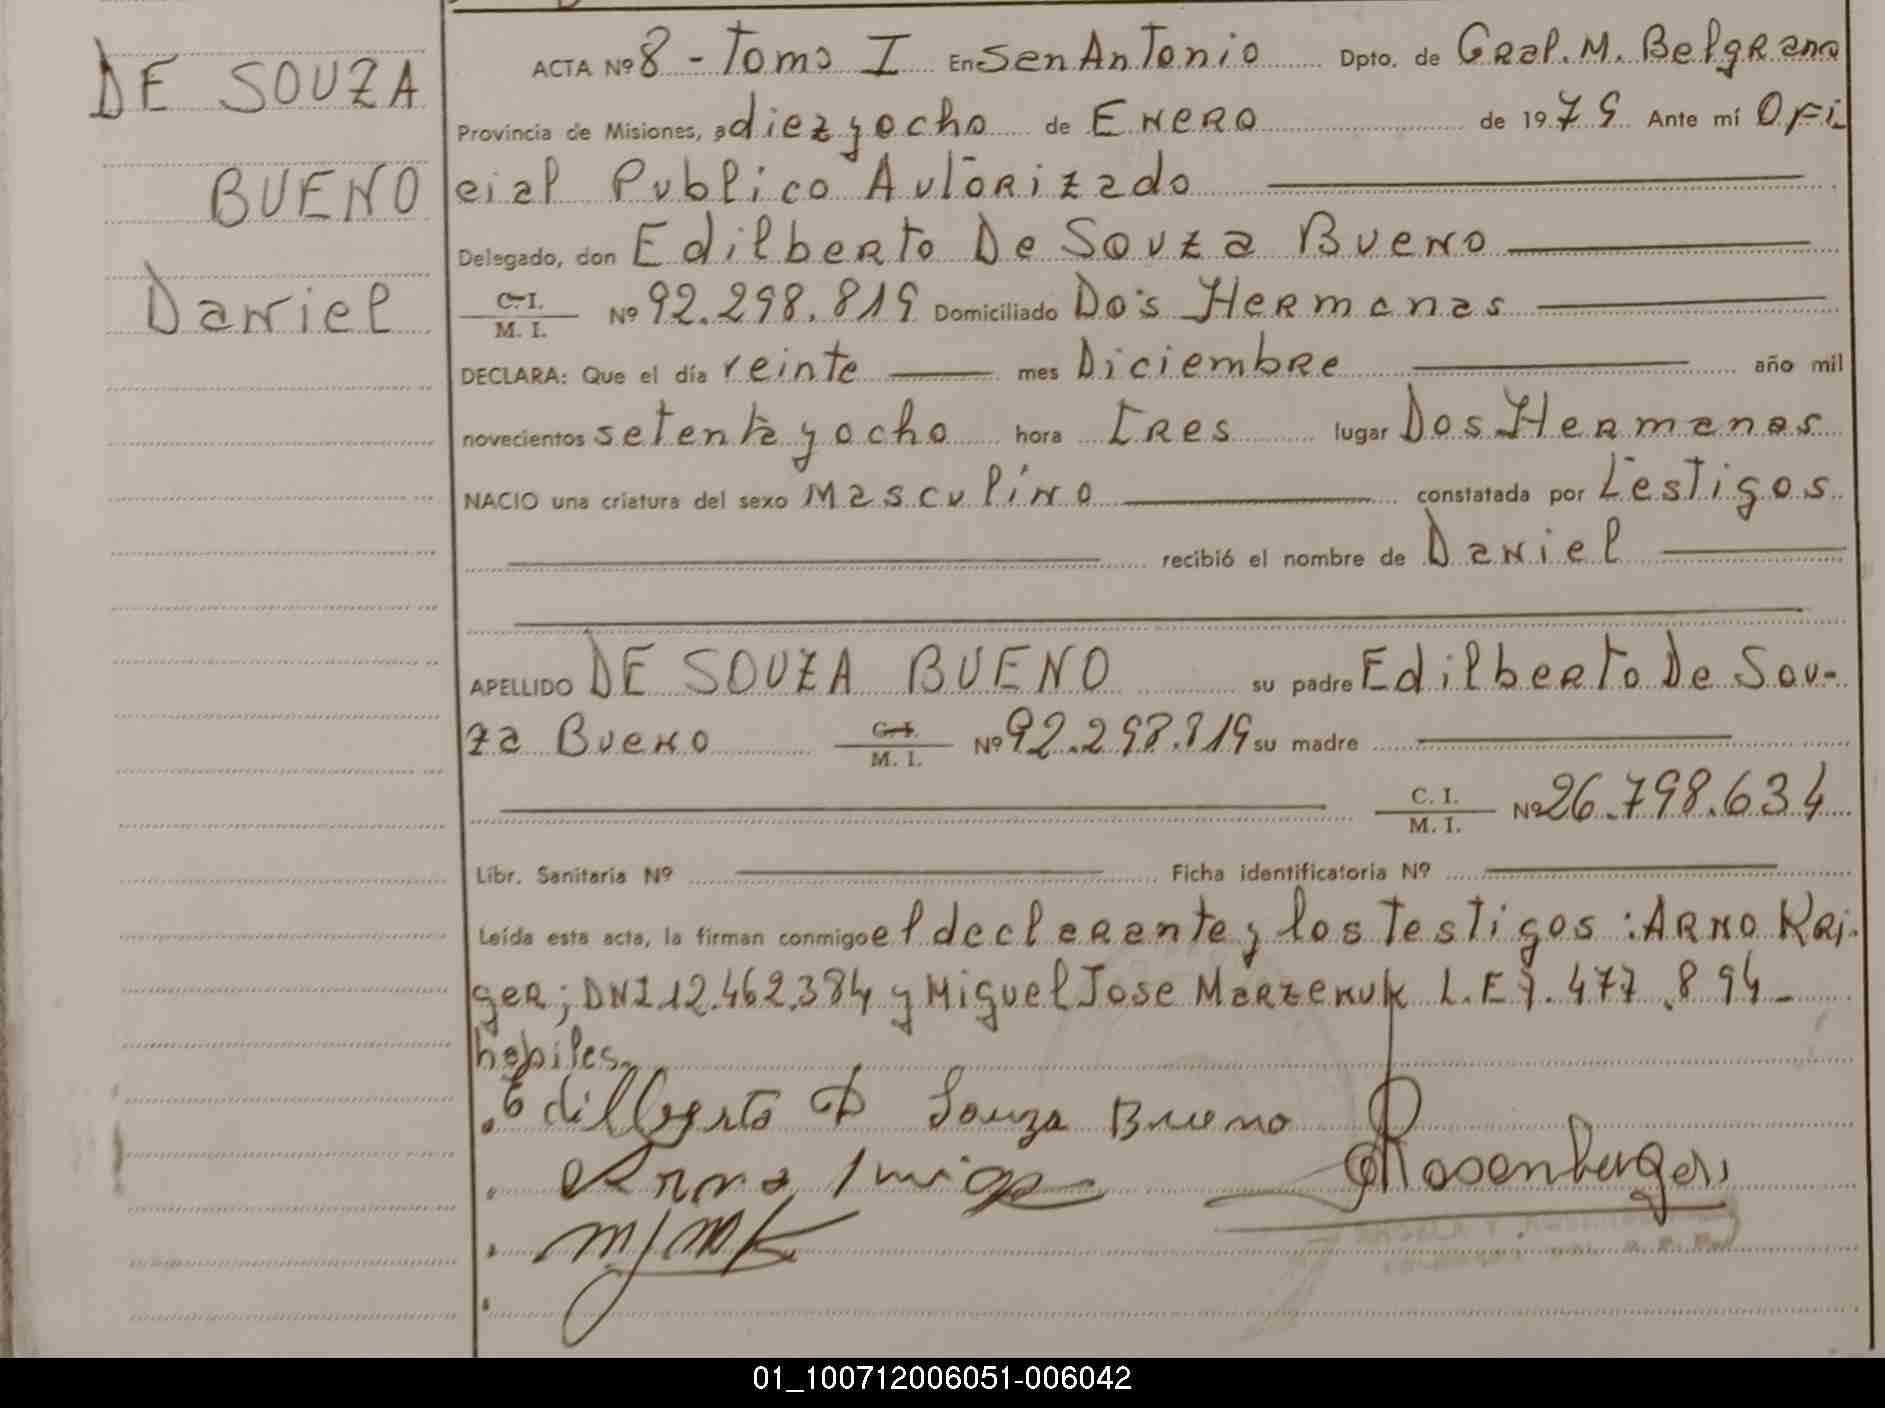 DE SOUZA
BUENO
Daniel
ACTA Nº 8 - Tomo I En San Antonio Dpto. de Gral. M. Belgrano
Provincia de Misiones, a diez y ocho de Enero de 1979 Ante mí Ofi
cial Publico Autorizado
Delegado, don Edilberto De Souza Bueno
C.I. / M. I. Nº 92.298.819 Domiciliado Dos Hermanas
DECLARA: Que el día veinte mes Diciembre año mil
novecientos setenta y ocho hora tres lugar Dos Hermanas
NACIO una criatura del sexo Masculino constatada por testigos
recibió el nombre de Daniel
APELLIDO DE SOUZA BUENO su padre Edilberto De Sou-
za Bueno C.I. / M. I. Nº 92.298.819 su madre
C. I. / M. I. Nº 26.798.634
Libr. Sanitaria Nº Ficha identificatoria Nº
Leída esta acta, la firman conmigo el declarante y los testigos: Arno Kri-
ger; DNI 12.462.384 y Miguel Jose Marzenuk L.E 7.477.894-
habiles.
Edilberto D Souza Bueno
Rosenberger
01_100712006051-006042